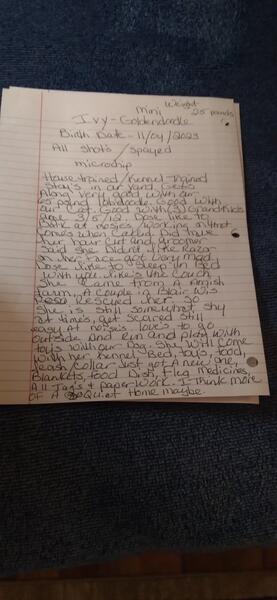 Weight
Mini 25 pounds
Ivy - Goldendoodle
Birth Date - 11/04/2023
All shots / spayed
microchip
House trained / Kennel Trained
Stay's in our yard. Gets
Along very good with our
65 pound labradoodle. Good with
our Cat. Good with (3) Grandkids
age 3/5/12. Dose like to
Bark at nosies, working in other
homes when laeby. Did have
her hair cut and groomer
said she Didn't like Razor
on her Face got very mad
Dose like to sleep in Bed
with you. like's the couch
She Came from A Amish
Farm. A Couple in Blair Wis
Rescued her. So
She is still somewhat shy
at times, get scared still
easy At noise's. love's to go
outside And run and play with
toys with our Dog. She will come
with her Kennel-Bed, toys, food,
leash, collar Just got A new one,
Blankets, food Dish, Flug medicines,
All Tag's & paper-work. I think more
of A Quiet Home maybe.